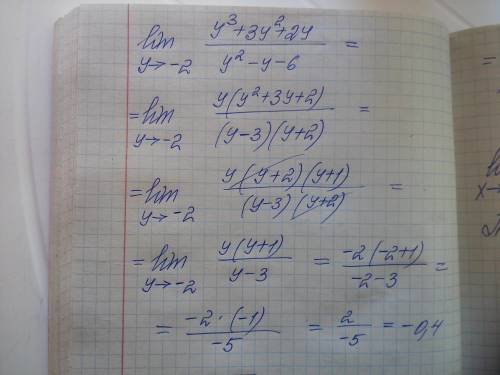 lim y→-2 (y³+3y²+2y)/(y²-y-6) =
= lim y→-2 (y(y²+3y+2))/((y-3)(y+2)) =
= lim y→-2 (y(y+2)(y+1))/((y-3)(y+2)) =
= lim y→-2 (y(y+1))/(y-3) = (-2(-2+1))/(-2-3) =
= (-2·(-1))/(-5) = 2/(-5) = -0,4